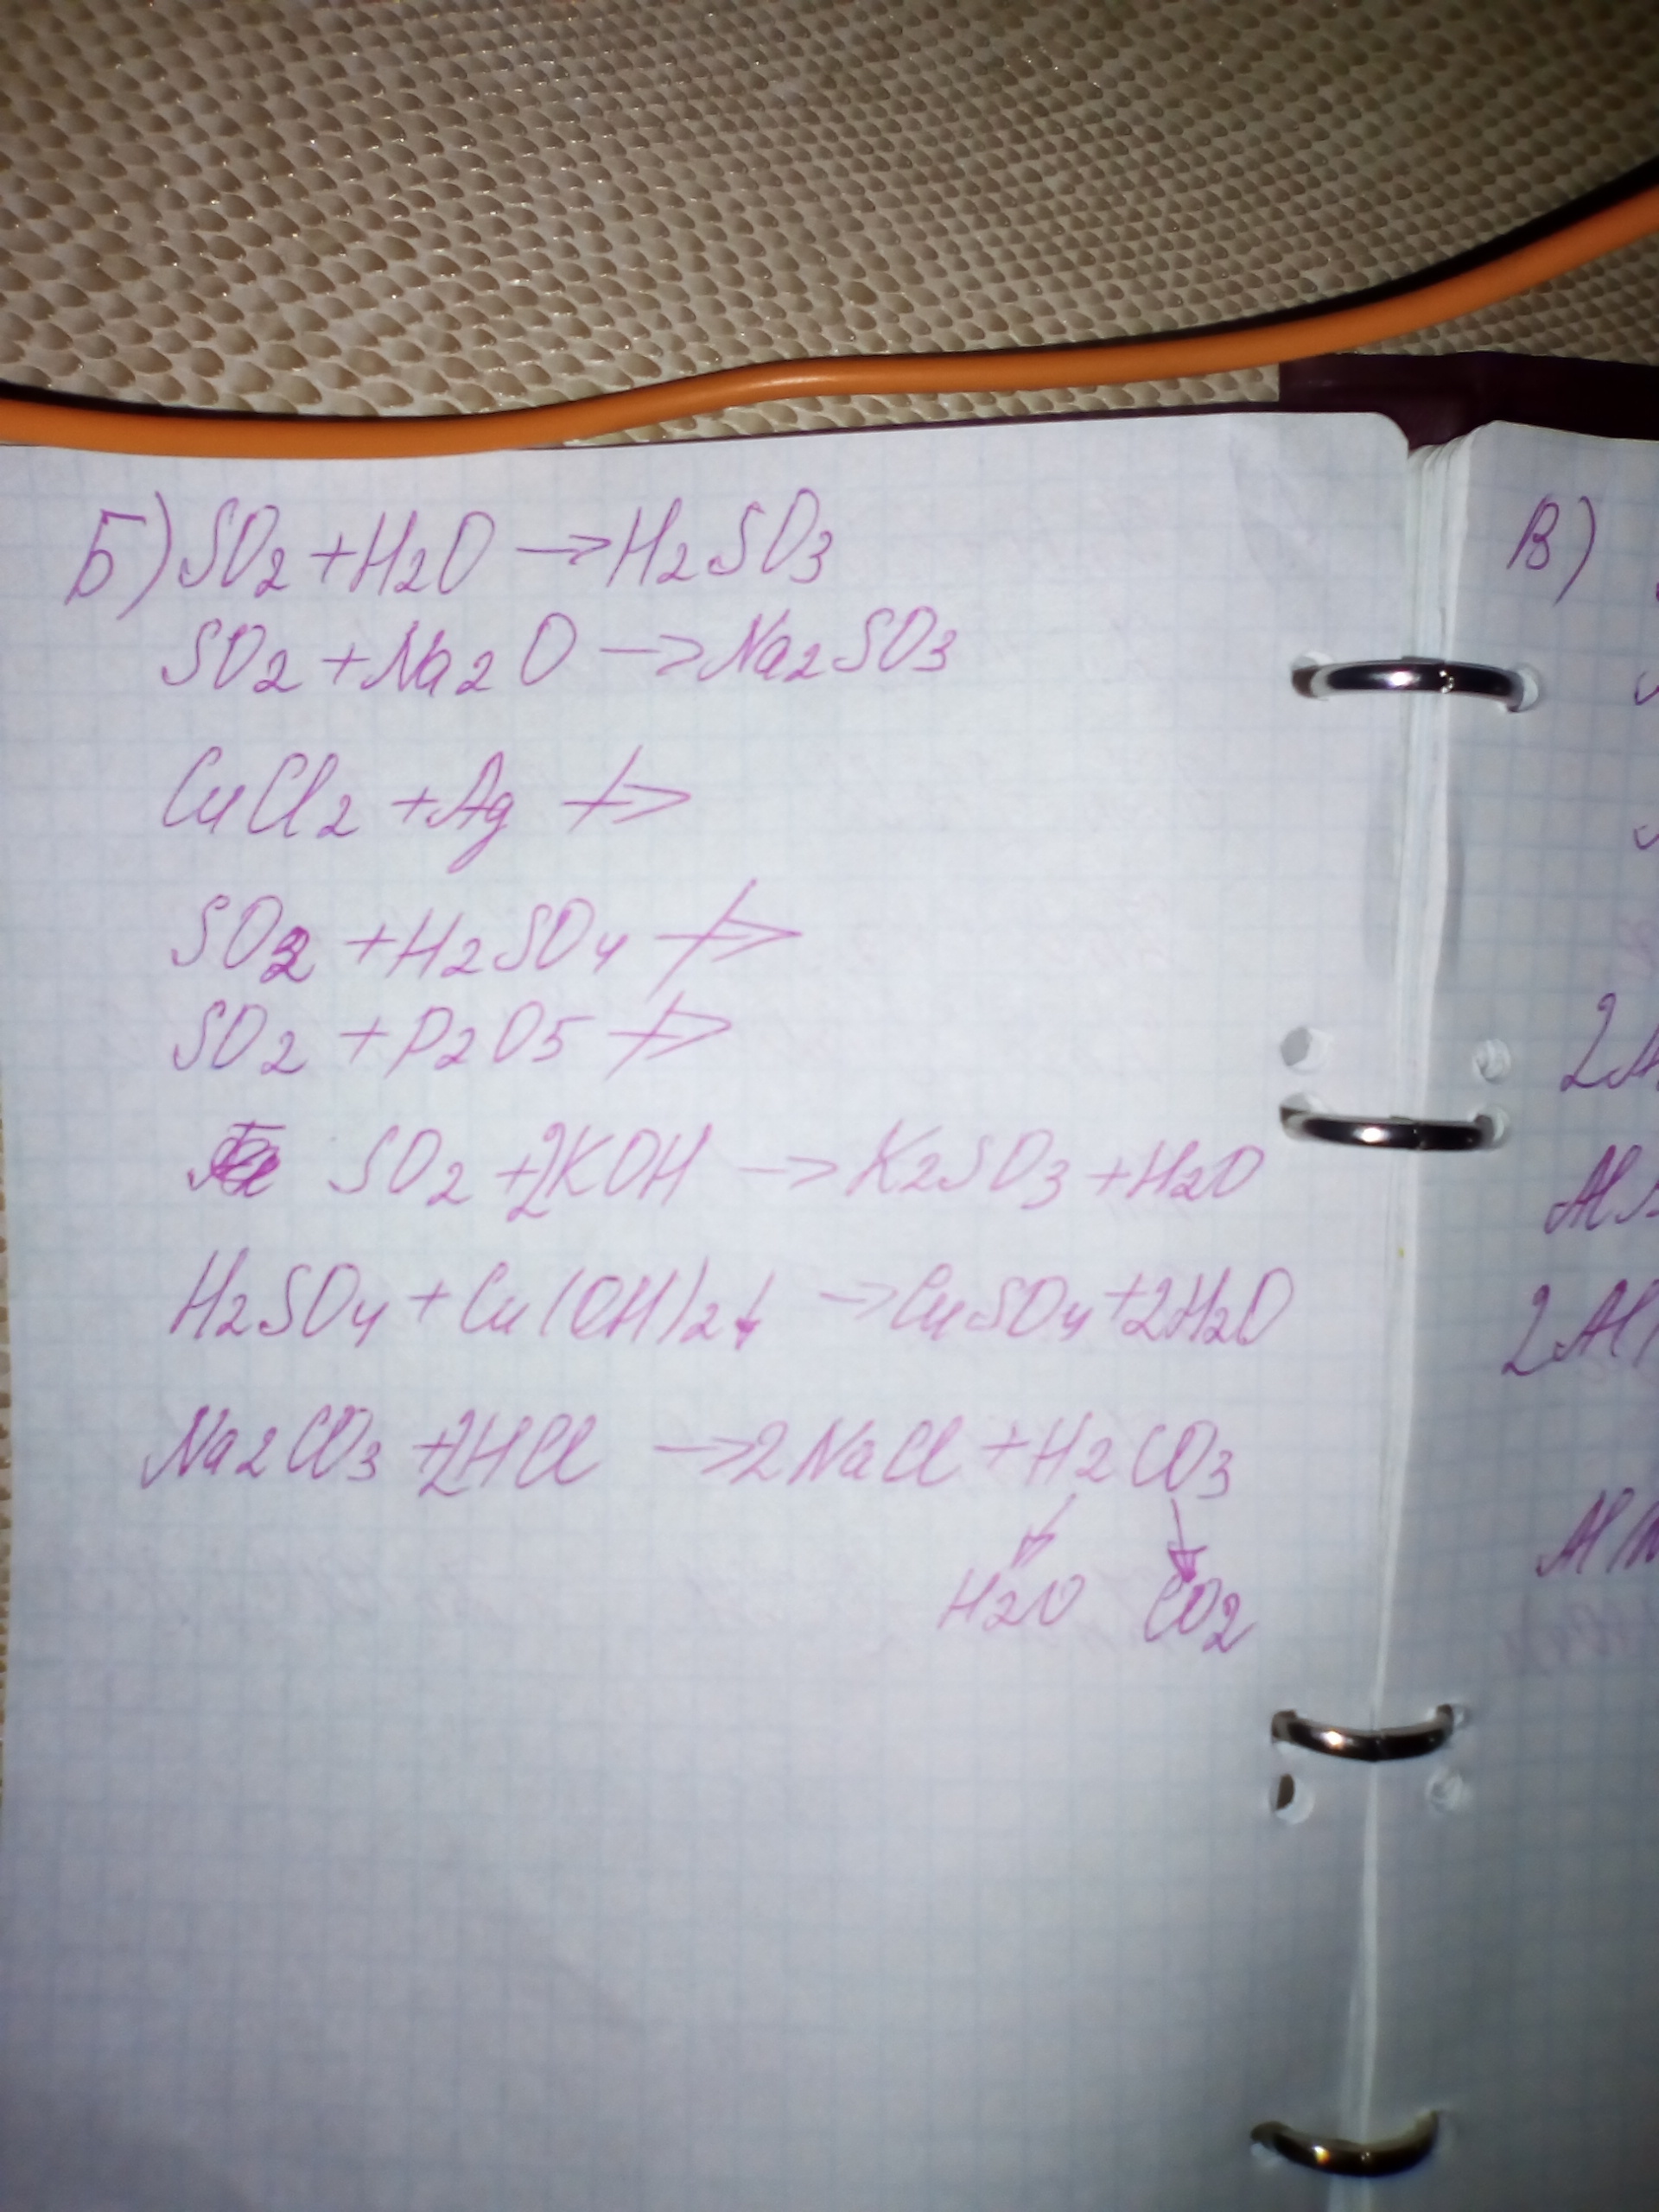 Б) SO2 + H2O → H2SO3
SO2 + Na2O → Na2SO3
CuCl2 + Ag ↛
SO2 + H2SO4 ↛
SO2 + P2O5 ↛
SO2 + 2KOH → K2SO3 + H2O
H2SO4 + Cu(OH)2↓ → CuSO4 + 2H2O
Na2CO3 + 2HCl → 2NaCl + H2CO3
H2O CO2
В)
2A
Al
2Al
Al